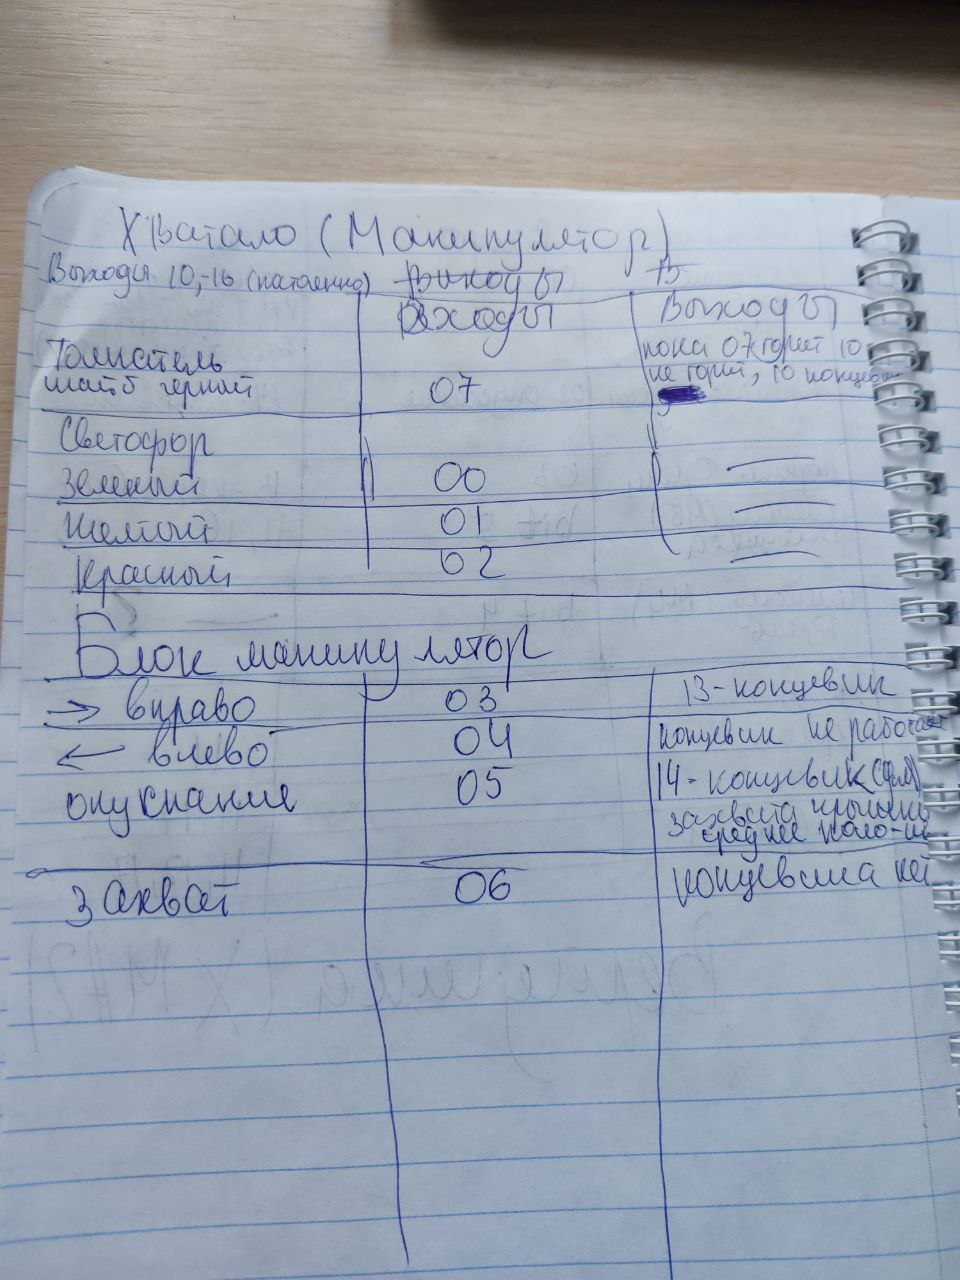 Хватало (Манипулятор)
Выходы 10,-16 (постоянно) Выходы В
Входы Выходы
Толкатель пока 07 горит 10
шайб черный 07 не горит, 10 концевик
Светофор
Зеленый 00 —
Желтый 01 —
Красный 02 —
Блок манипулятор
→ вправо 03 13-концевик
← влево 04 концевик не работает
опускание 05 14-концевик (для)
захвата крышки
среднее поло-ие
Захват 06 концевика нет